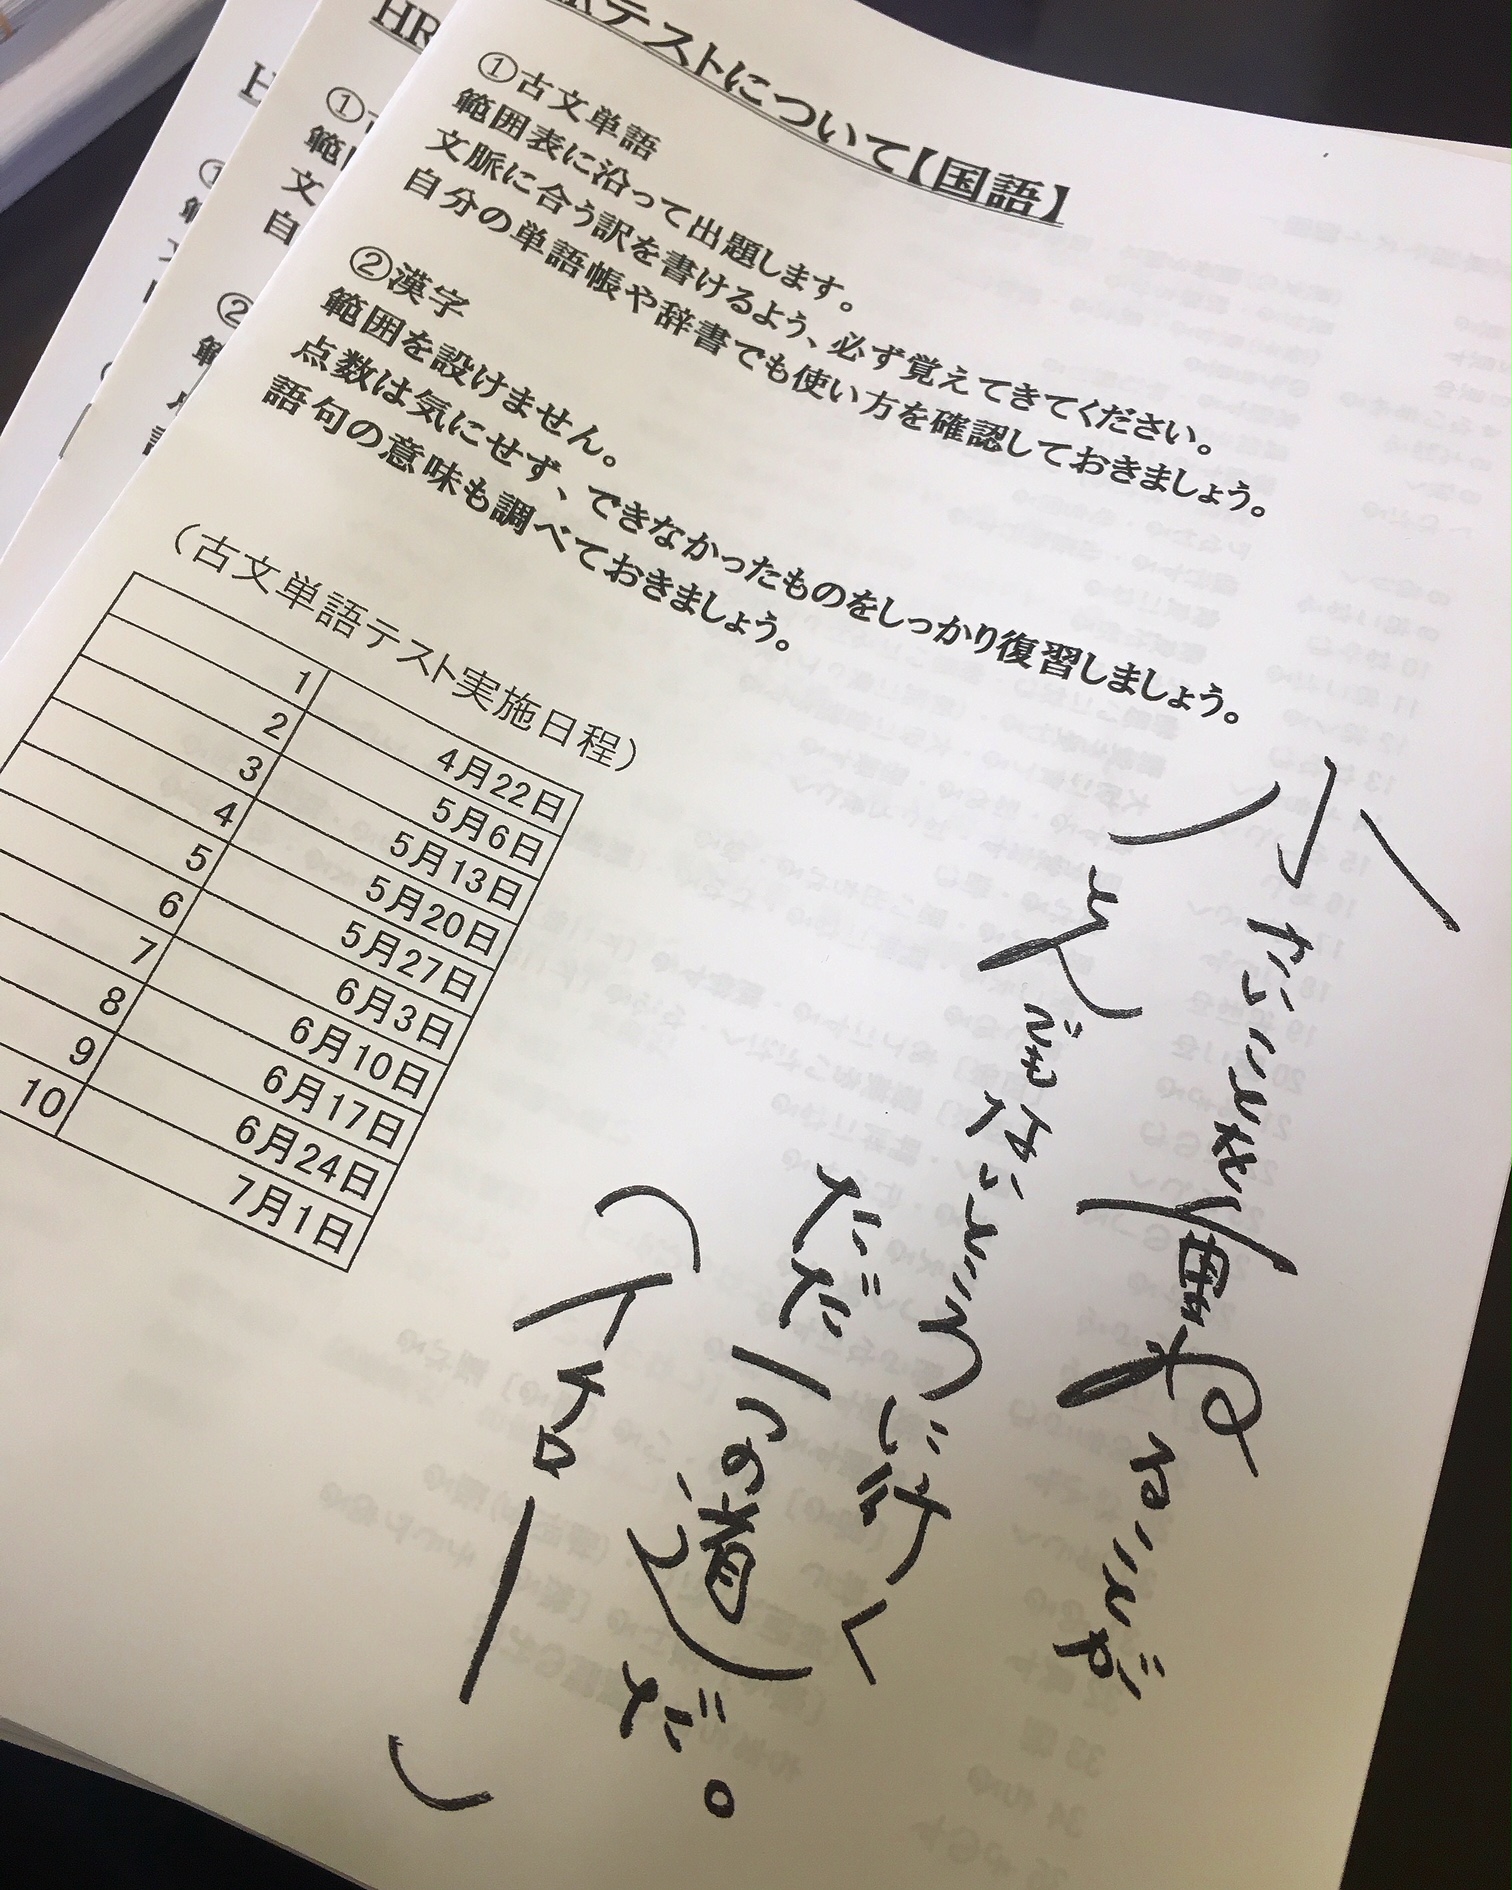 Rテストについて【国語】
①古文単語
範囲表に沿って出題します。
文脈に合う訳を書けるよう、必ず覚えてきてください。
自分の単語帳や辞書でも使い方を確認しておきましょう。
②漢字
範囲を設けません。
点数は気にせず、できなかったものをしっかり復習しましょう。
語句の意味も調べておきましょう。
（古文単語テスト実施日程）
1 4月22日
2 5月6日
3 5月13日
4 5月20日
5 5月27日
6 6月3日
7 6月10日
8 6月17日
9 6月24日
10 7月1日
小さいことを重ねることが
とんでもないところに行く
ただ一つの道だ。
（イチロー）